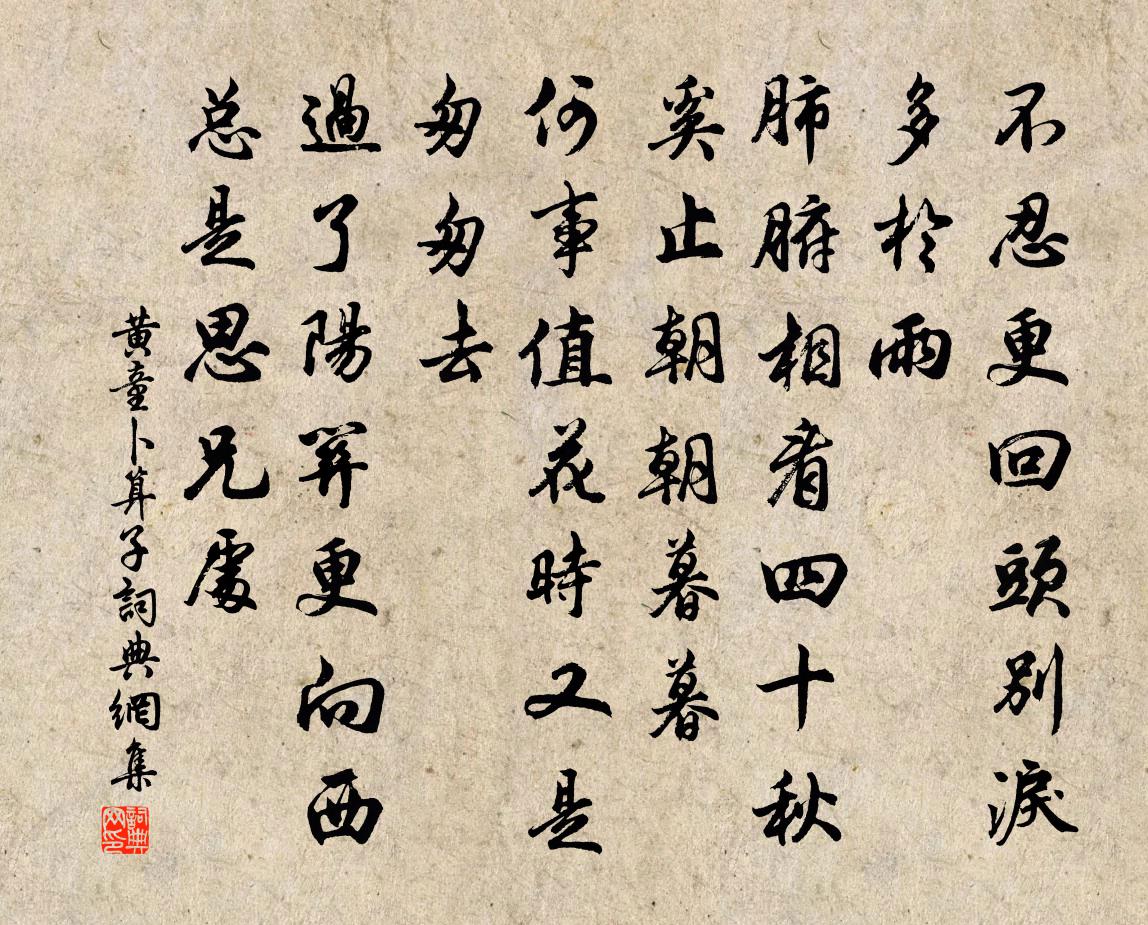 不忍更回頭別淚
多於雨
肺腑相看四十秋
奚止朝朝暮暮
何事值花時又是
匆匆去
過了陽關更向西
總是思兄處
黃童卜算子詞典網集
詞典網印